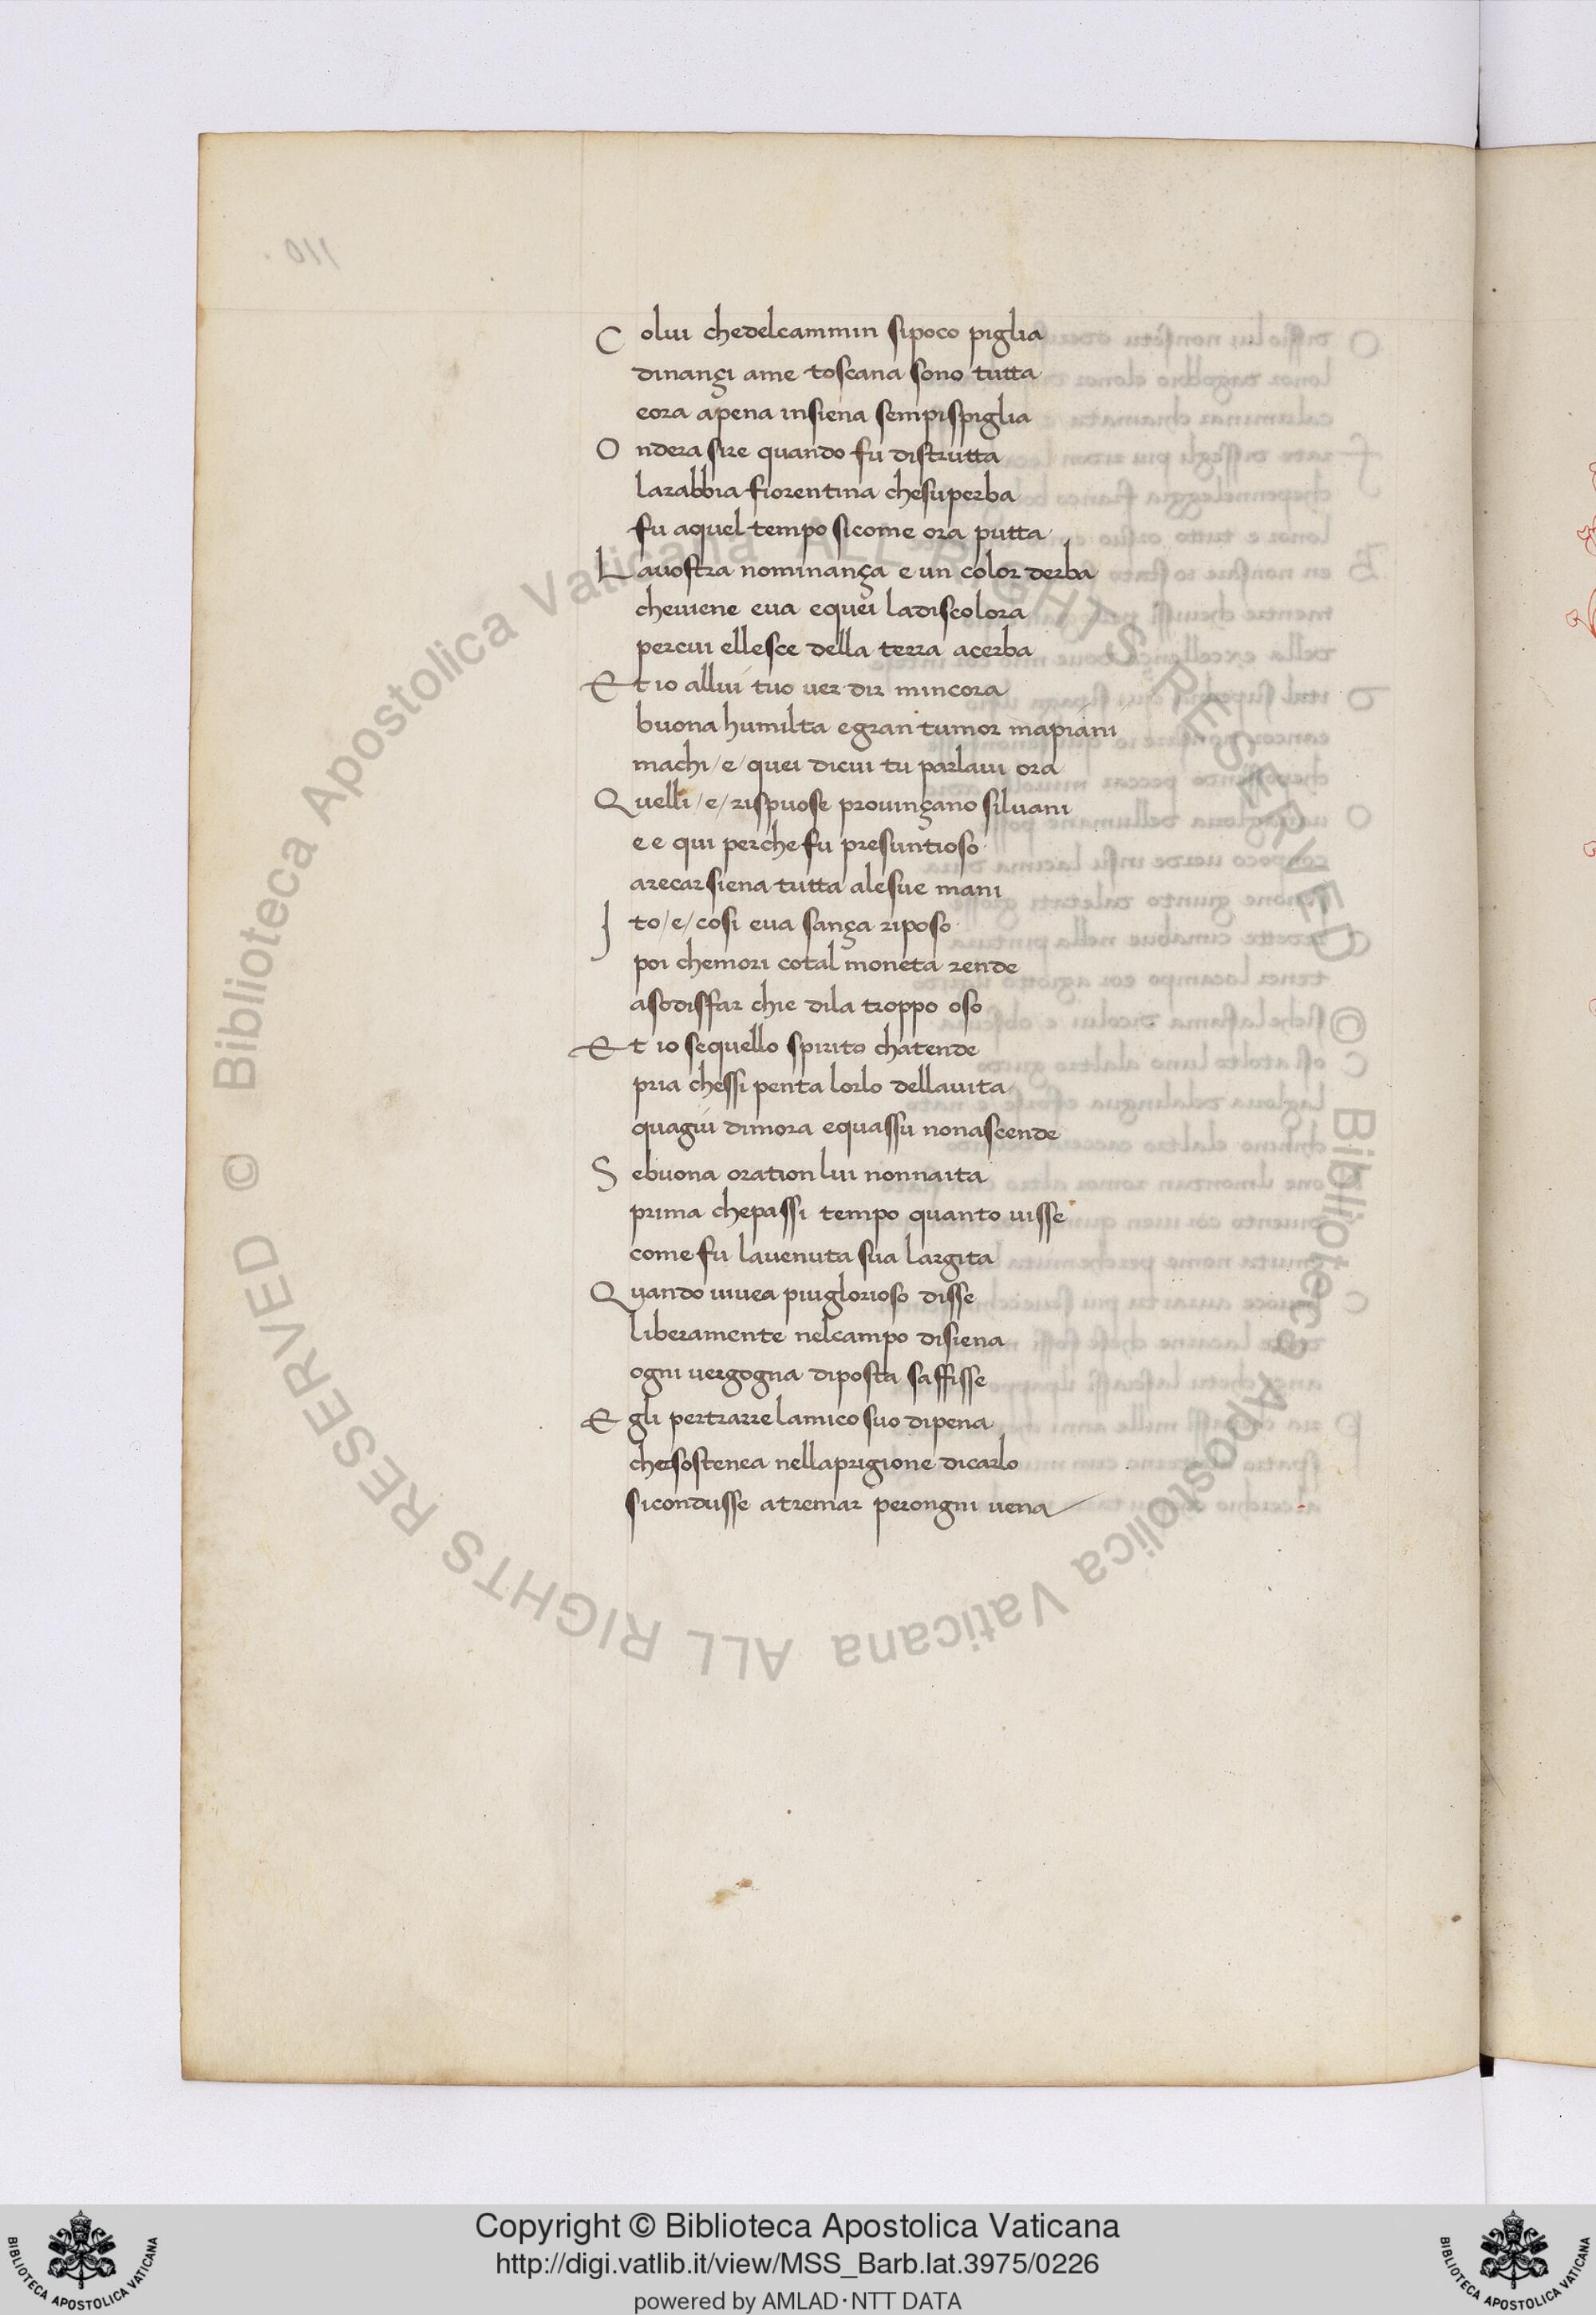 Colui chedelcammin sipoco piglia
dinançi ame toscana sono tutta
eora apena insiena sempispiglia
Ondera sire quando fu distrutta
larabbia fiorentina chesuperba
fu aquel tempo sicome ora putta
Lavostra nominança e un color derba
cheviene eva equei ladiscolora
percui ellesce della terra acerba
Et io allui tuo ver dir mincora
buona humilta egran tumor mapiani
machi/e/quei dicui tu parlavi ora
Quelli/e/rispuose provinçano silvani
e e qui perche fu presuntioso
arecar siena tutta alesue mani
Ito/e/cosi eva sança riposo
poi chemori cotal moneta rende
asodisfar chie dila troppo oso
Et io sequello spirito chatende
pria chessi penta lorlo dellavita
quagiu dimora equassu nonascende
Sebuona oration lui nonnaita
prima chepassi tempo quanto visse
come fu lavenuta sua largita
Quando vivea piuglorioso disse
liberamente nelcampo disiena
ogni vergogna diposta saffisse
Egli pertrarre lamico suo dipena
chersostenea nellaprigione dicarlo
sicondusse atremar perongni vena
© Biblioteca Apostolica Vaticana ALL RIGHTS RESERVED
© Biblioteca Apostolica Vaticana ALL RIGHTS RESERVED
Copyright © Biblioteca Apostolica Vaticana
http://digi.vatlib.it/view/MSS_Barb.lat.3975/0226
powered by AMLAD·NTT DATA
BIBLIOTECA APOSTOLICA VATICANA
BIBLIOTECA APOSTOLICA VATICANA